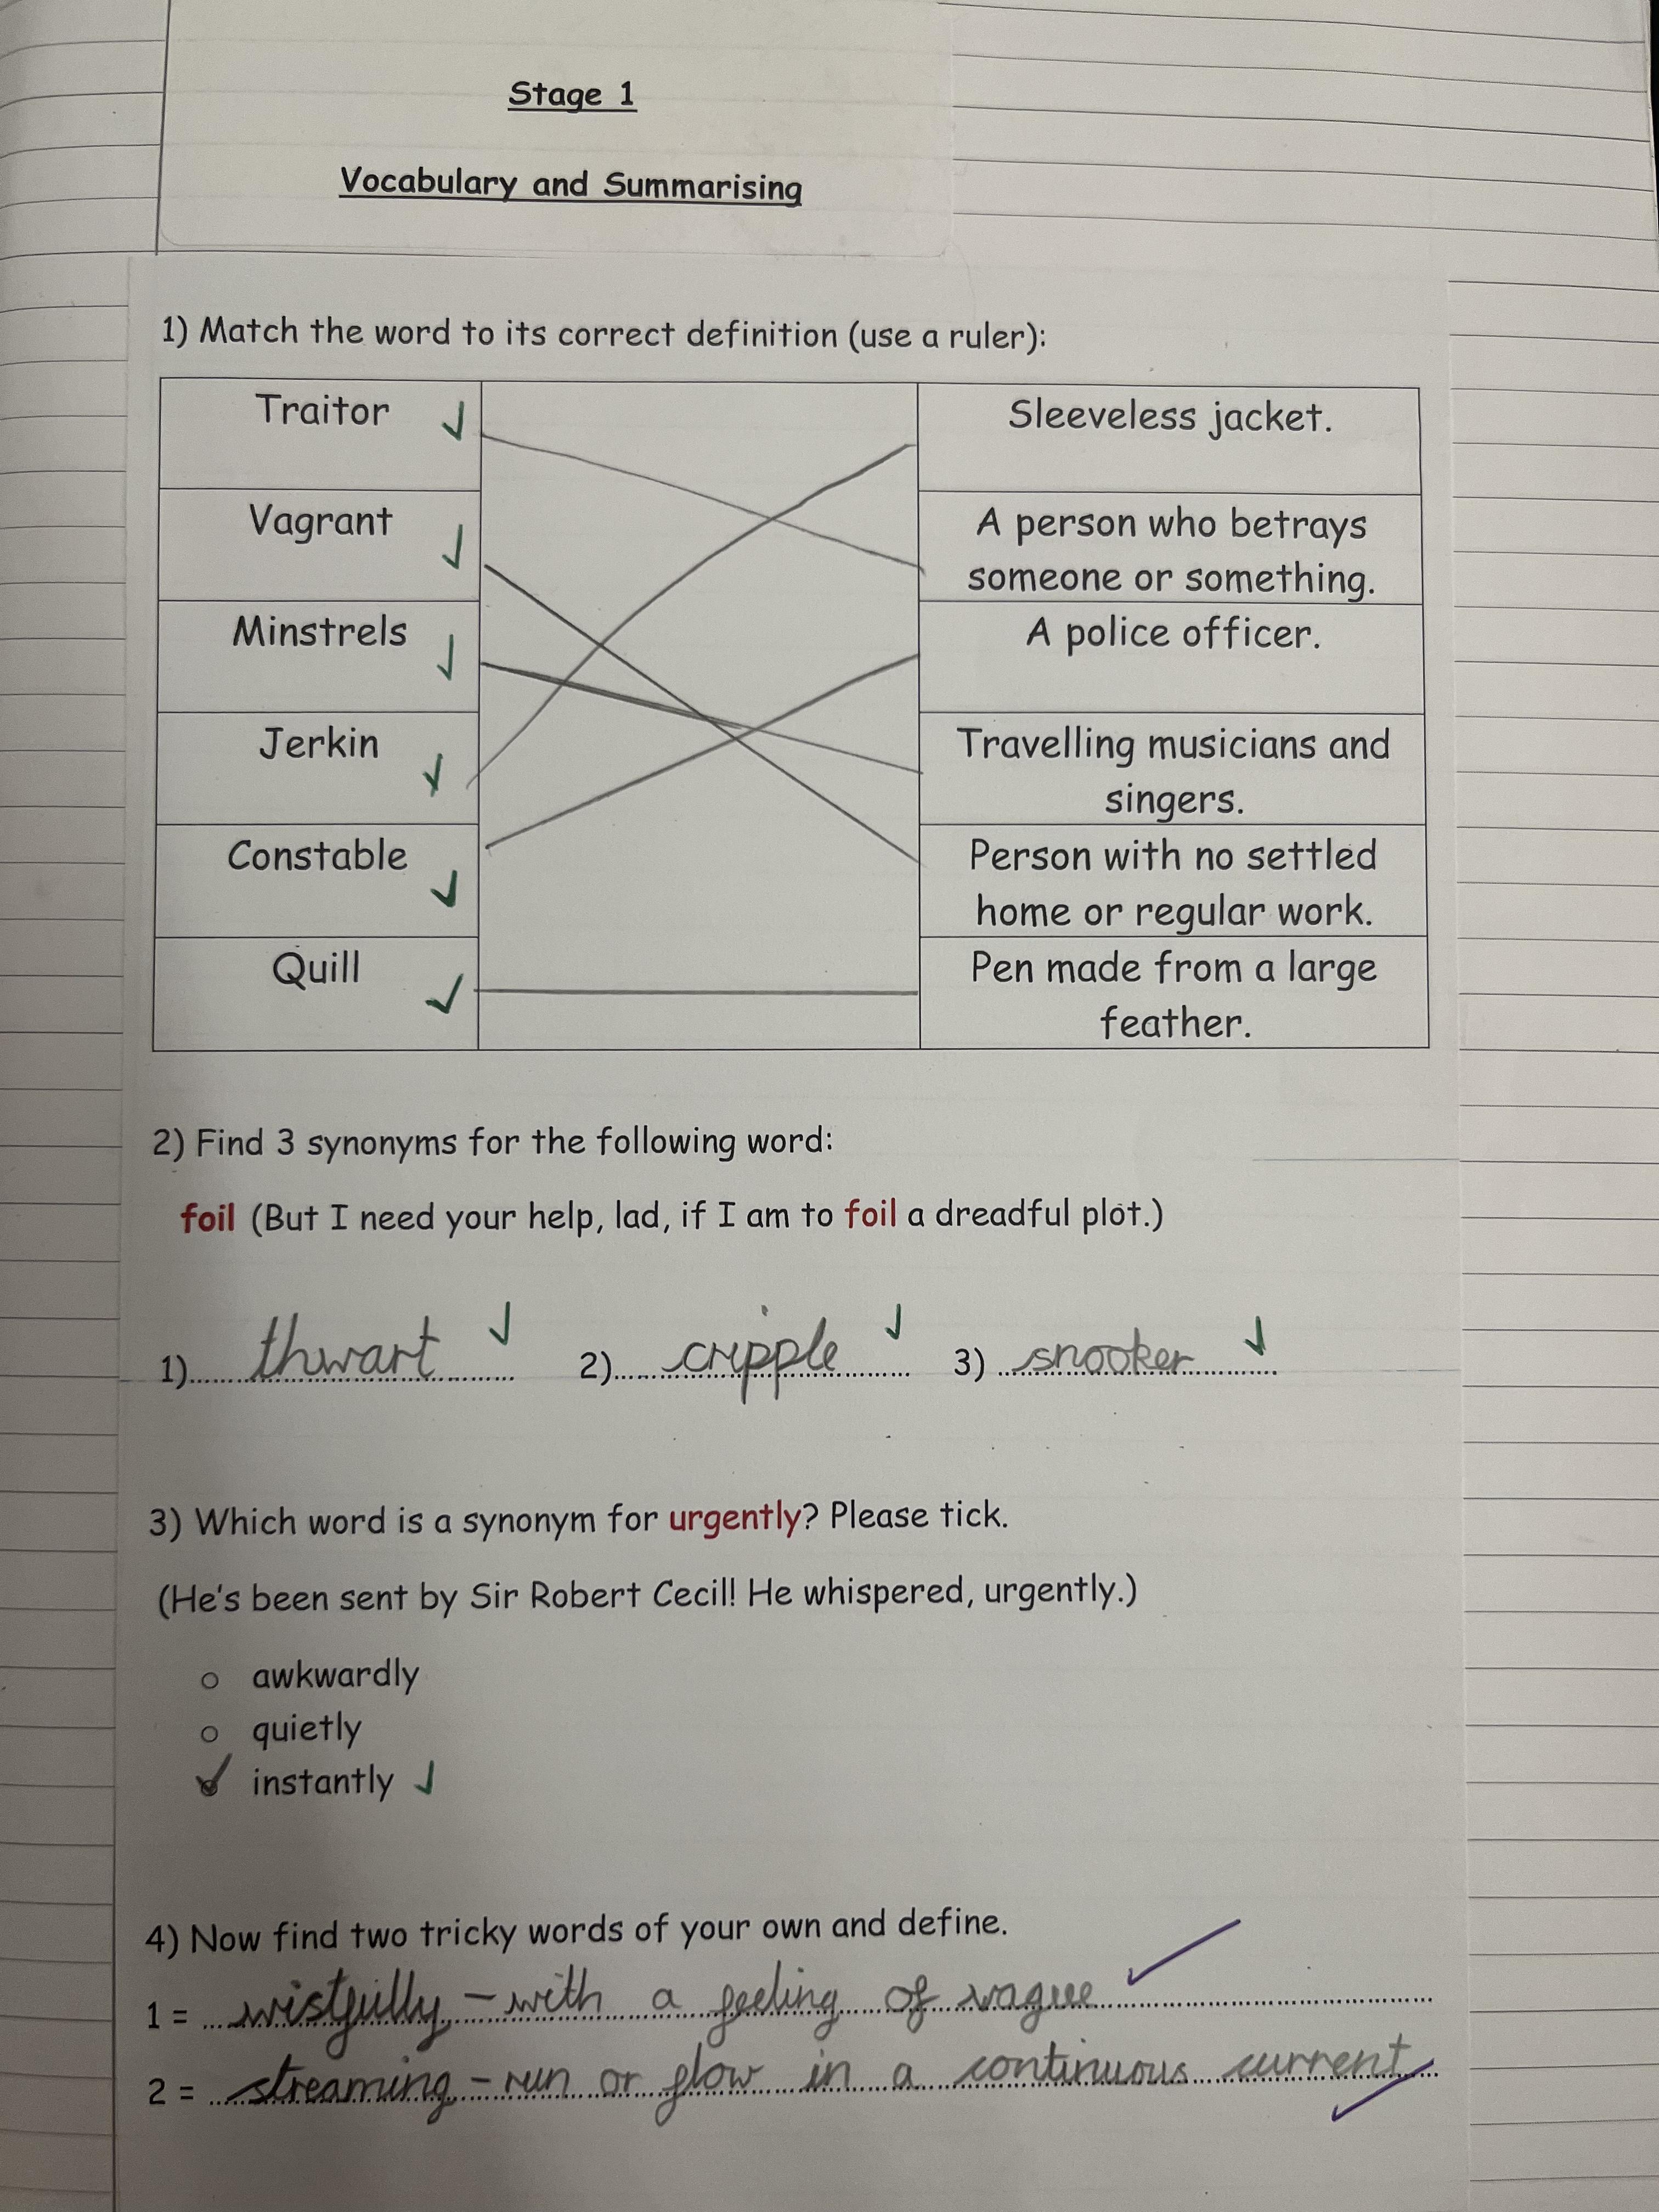 Stage 1
Vocabulary and Summarising
1) Match the word to its correct definition (use a ruler):
Traitor
Sleeveless jacket.
Vagrant
A person who betrays
someone or something.
Minstrels
A police officer.
Jerkin
Travelling musicians and
singers.
Constable
Person with no settled
home or regular work.
Quill
Pen made from a large
feather.
2) Find 3 synonyms for the following word:
foil (But I need your help, lad, if I am to foil a dreadful plot.)
1) thwart 2) cripple 3) snooker
3) Which word is a synonym for urgently? Please tick.
(He's been sent by Sir Robert Cecil! He whispered, urgently.)
awkwardly
quietly
instantly
4) Now find two tricky words of your own and define.
1 = wistfully - with a feeling of vague
2 = streaming - run or flow in a continuous current